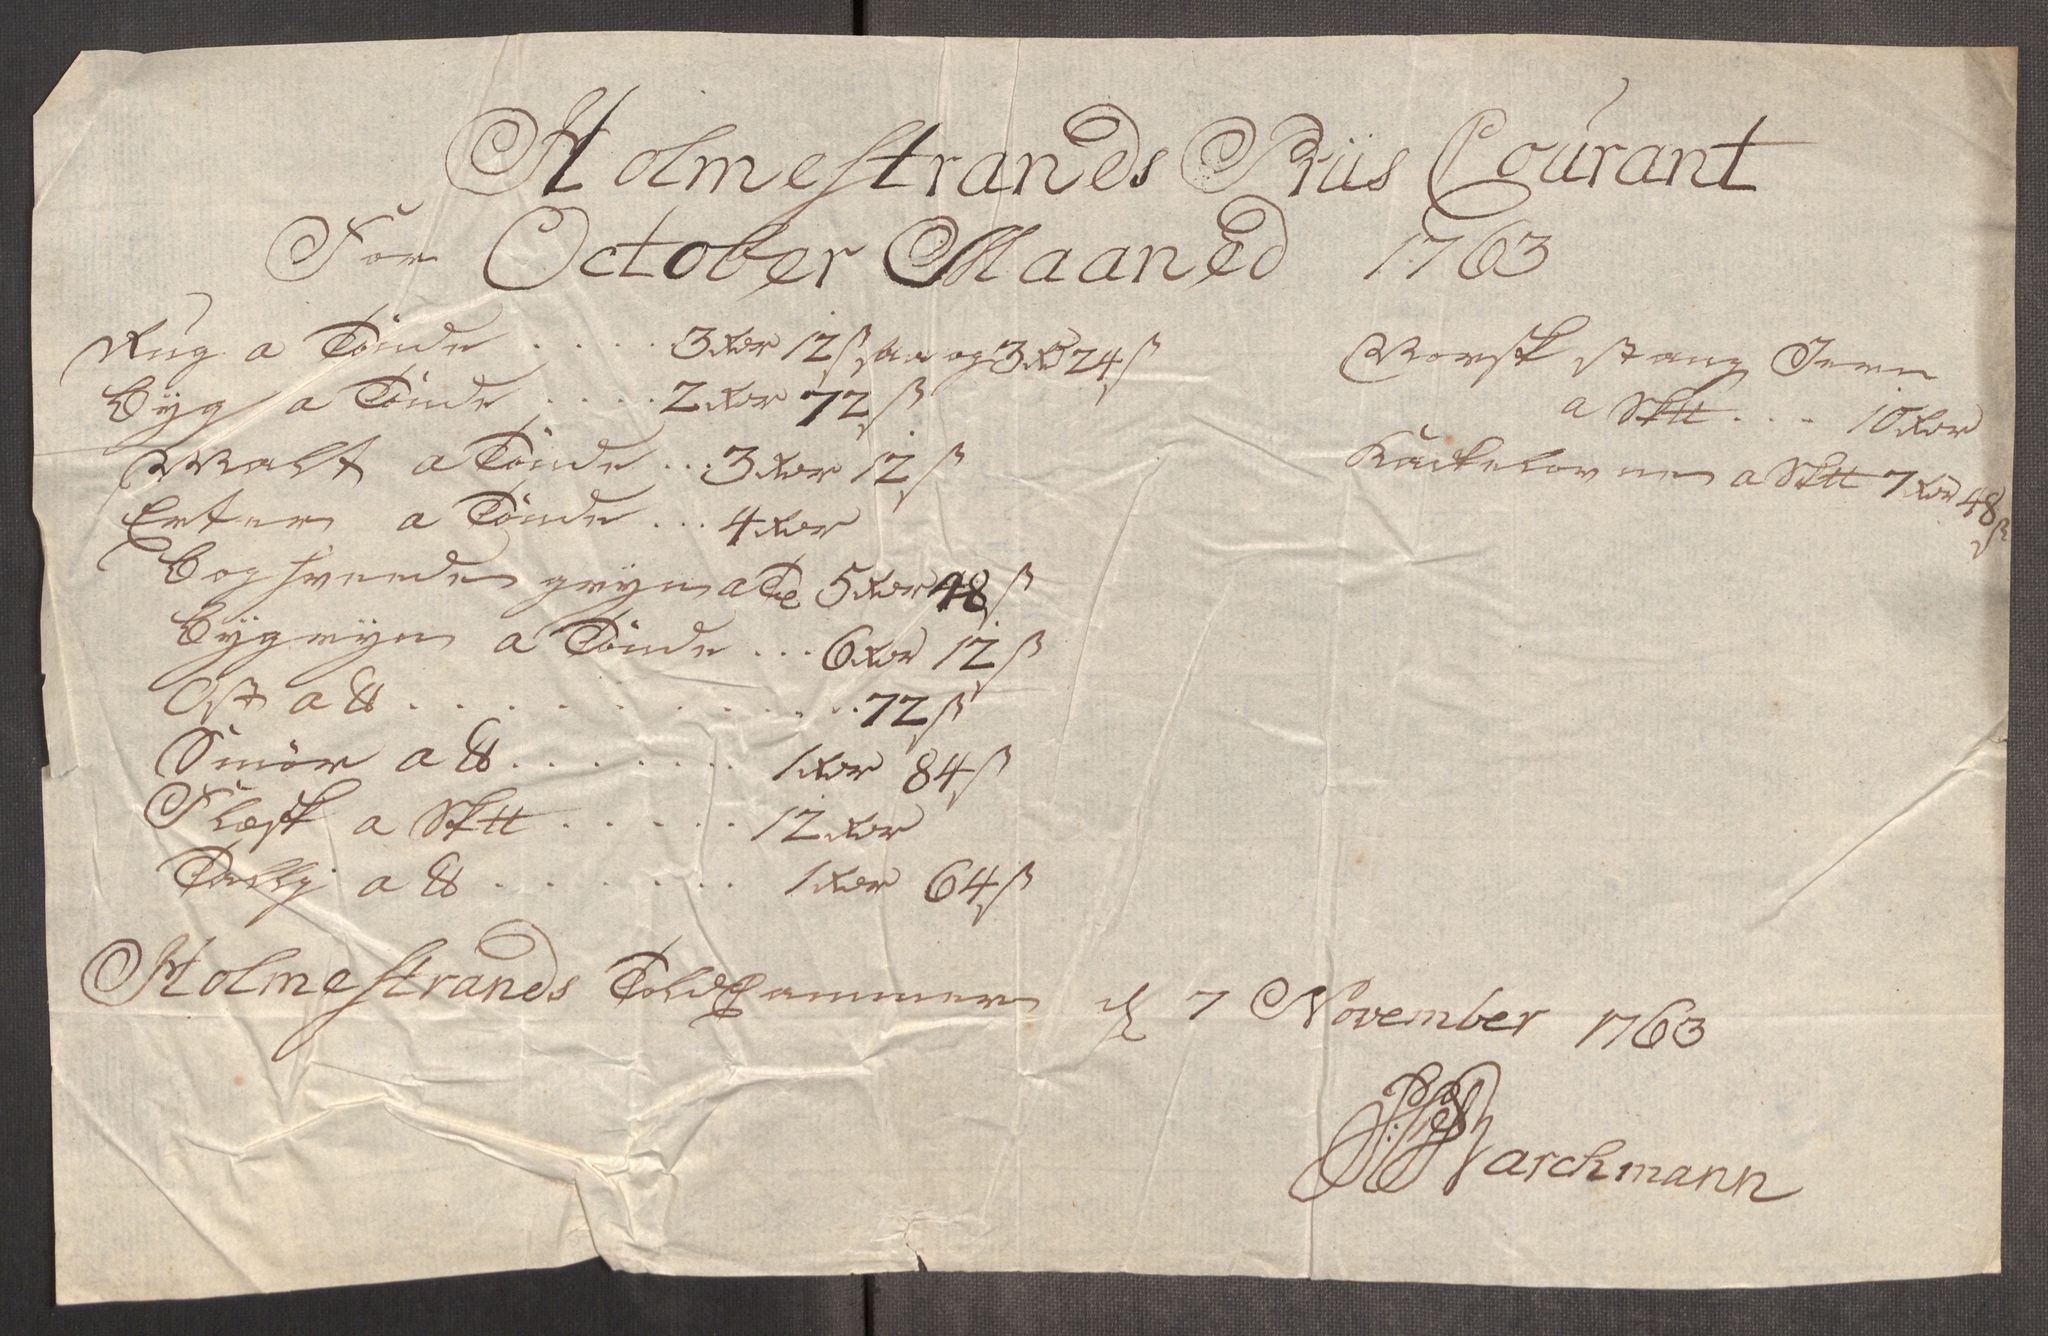 Holmestrands Priis Courant
For October Maaned 1763
Rug a Tönde . . . . . 3 Rdr 12 ß aa og 3 Rd 24 ß
Byg a Tönde . . . . . 2 Rdr 72 ß
Malt a Tönde . . . 3 Rdr 12 ß
Erter a Tönde . . . 4 Rdr
Boghveede gryn a Te 5 Rdr 48 ß
Byggryn a Tönde . . . 6 Rdr 12 ß
Ost a ℔ . . . . . . . . . . . . 72 ß
Smör a ℔ . . . . . . . 1 Rdr 84 ß
Flæsk a Sk℔ . . . . . . 12 Rdr
Tallig a ℔ . . . . . . . 1 Rdr 64 ß
Norsk stang Jern
a Sk℔ . . . 10 Rdr
Kackelovne a Sk℔ 7 Rdr 48 ß
Holmestrands Told Cammer d 7 November 1763
Barchmann